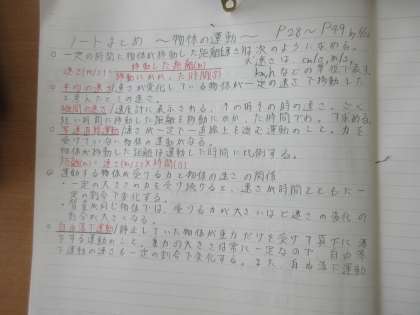 ノートまとめ ～物体の運動～ P28～P49
○一定の時間に物体が移動した距離速さは次のようになる。
速さ(m/s)= 移動した距離(m) ※速さは、cm/s,m/s,
移動にかかった時間(s) km/hなどの単位で表す
○平均の速さ/速さが変化している物体が一定の速さで移動した
と考えたときの速さ。
瞬間の速さ/速度計に表示される、そのときの時の速さ。ごく
短い時間に移動した距離を移動にかかった時間でわって求める。
○等速直線運動/速さが一定で一直線上を進む運動のこと。力を
受けていない物体の運動がなる。
物体が移動した距離は運動した時間に比例する。
距離(m)= 速さ(m/s)×時間(s)
◎運動する物体が受ける力と物体の速さの関係
・一定の大きさの力を受け続けると、速さが時間とともに一
定の割合で変化する。
・質量が同じ物体では、受ける力が大きいほど速さの変化の
割合が大きくなる。
○自由落下運動/静止していた物体が重力だけを受けて真下に落
下する運動のこと。重力の大きさは常に一定なので、自由落
下運動の速さも一定の割合で変化する。また、自由落下運動